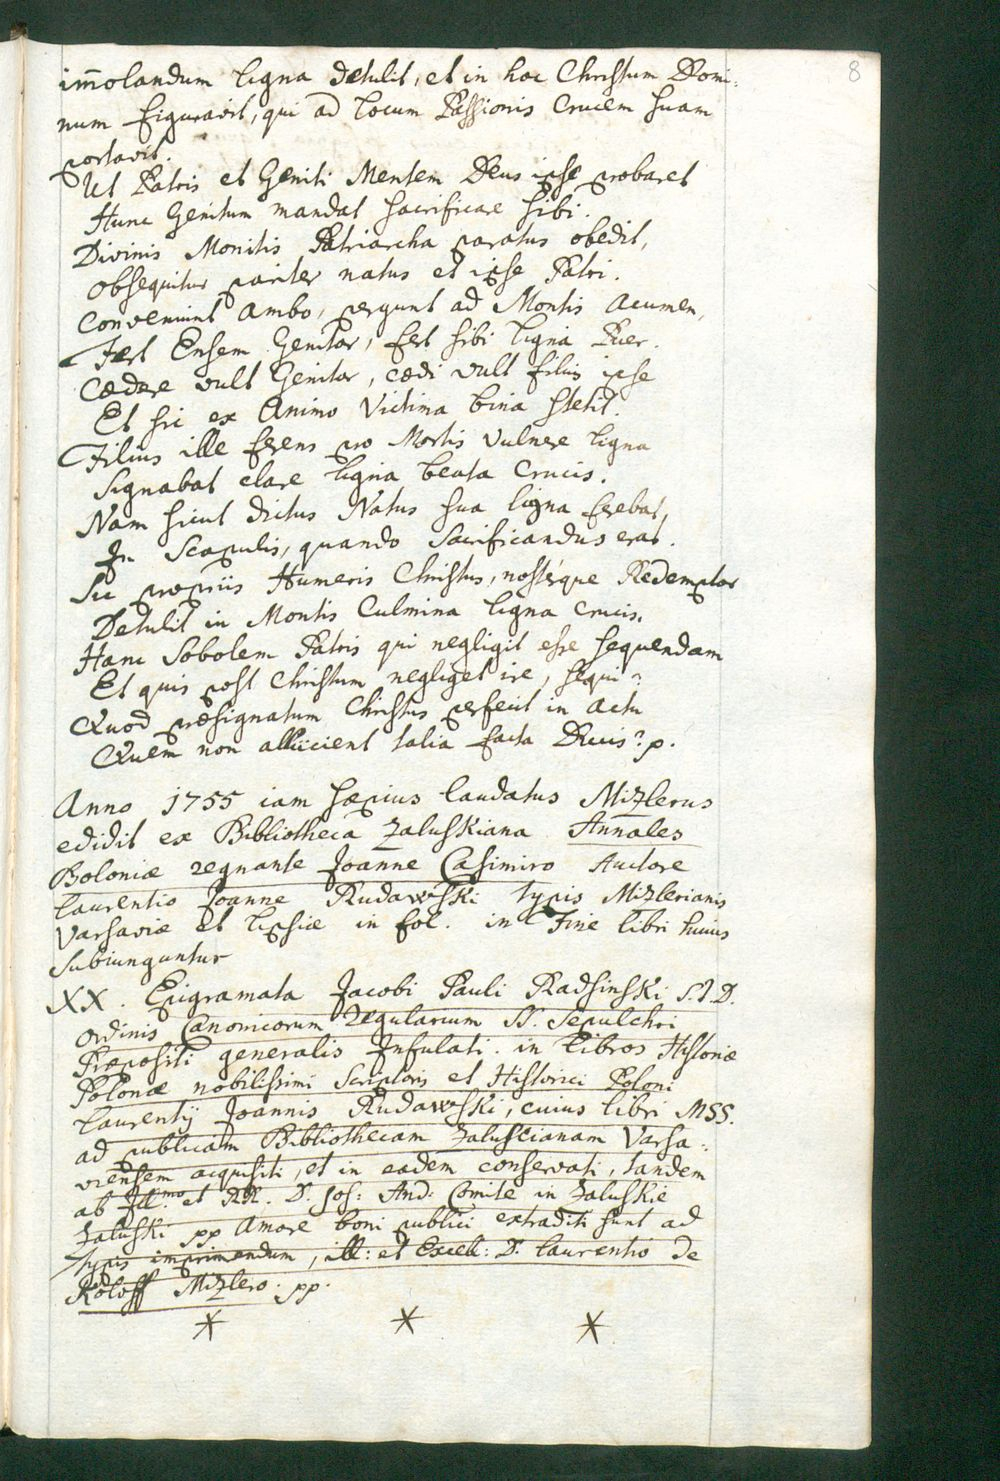 8
im̅olandum ligna detulit, et in hac Christum Domi-
num figuravit, qui ad locum Passionis Crucem suam
portavit.
Ut Patris et Geniti Mentem Deus ipse probaret
Hunc Genitum mandat sacrificare sibi.
Divinis Monitis Patriarcha paratus obedit,
Obsequitur pariter natus et ipse Patri.
Conveniunt Ambo, pergunt ad Montis acumen,
Fert Ensem Genitor, fert sibi ligna Puer.
Cædere vult Genitor, cædi vult filius ipse
Et sic ex Animo Victima bina stetit.
Filius ille ferens pro Mortis vulnere ligna
Signabat clare ligna beata Crucis.
Nam sicut dictus Natus sua ligna ferebat,
In Scapulis, quando Sacrificandus erat.
Sic propriis Humeris Christus, nosterque Redemptor
Detulit in Montis Culmina ligna crucis.
Hanc Sobolem Patris qui negligit esse sequendam
Et quis post Christum negliget ire, sequi?
Quod præsignatum Christus perfecit in actu
Quem non allicient talia facta Ducis? p.
Anno 1755 iam sæpius laudatus Mizlerus
edidit ex Bibliotheca Zaluskiana Annales
Poloniæ regnante Joanne Casimiro Auctore
Laurentio Joanne Rudawski typis Mizlerianis
Varsaviæ et Lipsiæ in fol. in Fine libri huius
subiunguntur
XX. Epigramata Jacobi Pauli Radlinski S.T.D.
Ordinis Canonicorum Regularium SS. Sepulchri
Præpositi generalis Infulati. in Libros Historiæ
Polonæ nobilissimi Scriptoris et Historici Poloni
Laurentij Joannis Rudawski, cuius libri MSS.
ad publicam Bibliothecam Zaluscianam Varsa-
viensem acquisiti, et in eadem conservati, tandem
ab Ill.mo et RR. D. Jos: And: Comite in Zaluskie
Zaluski pp Amore boni publici extraditi sunt ad
typis imprimendum, ill: et Excell: D. Laurentio de
Koloff Mizlero. pp.
* * *